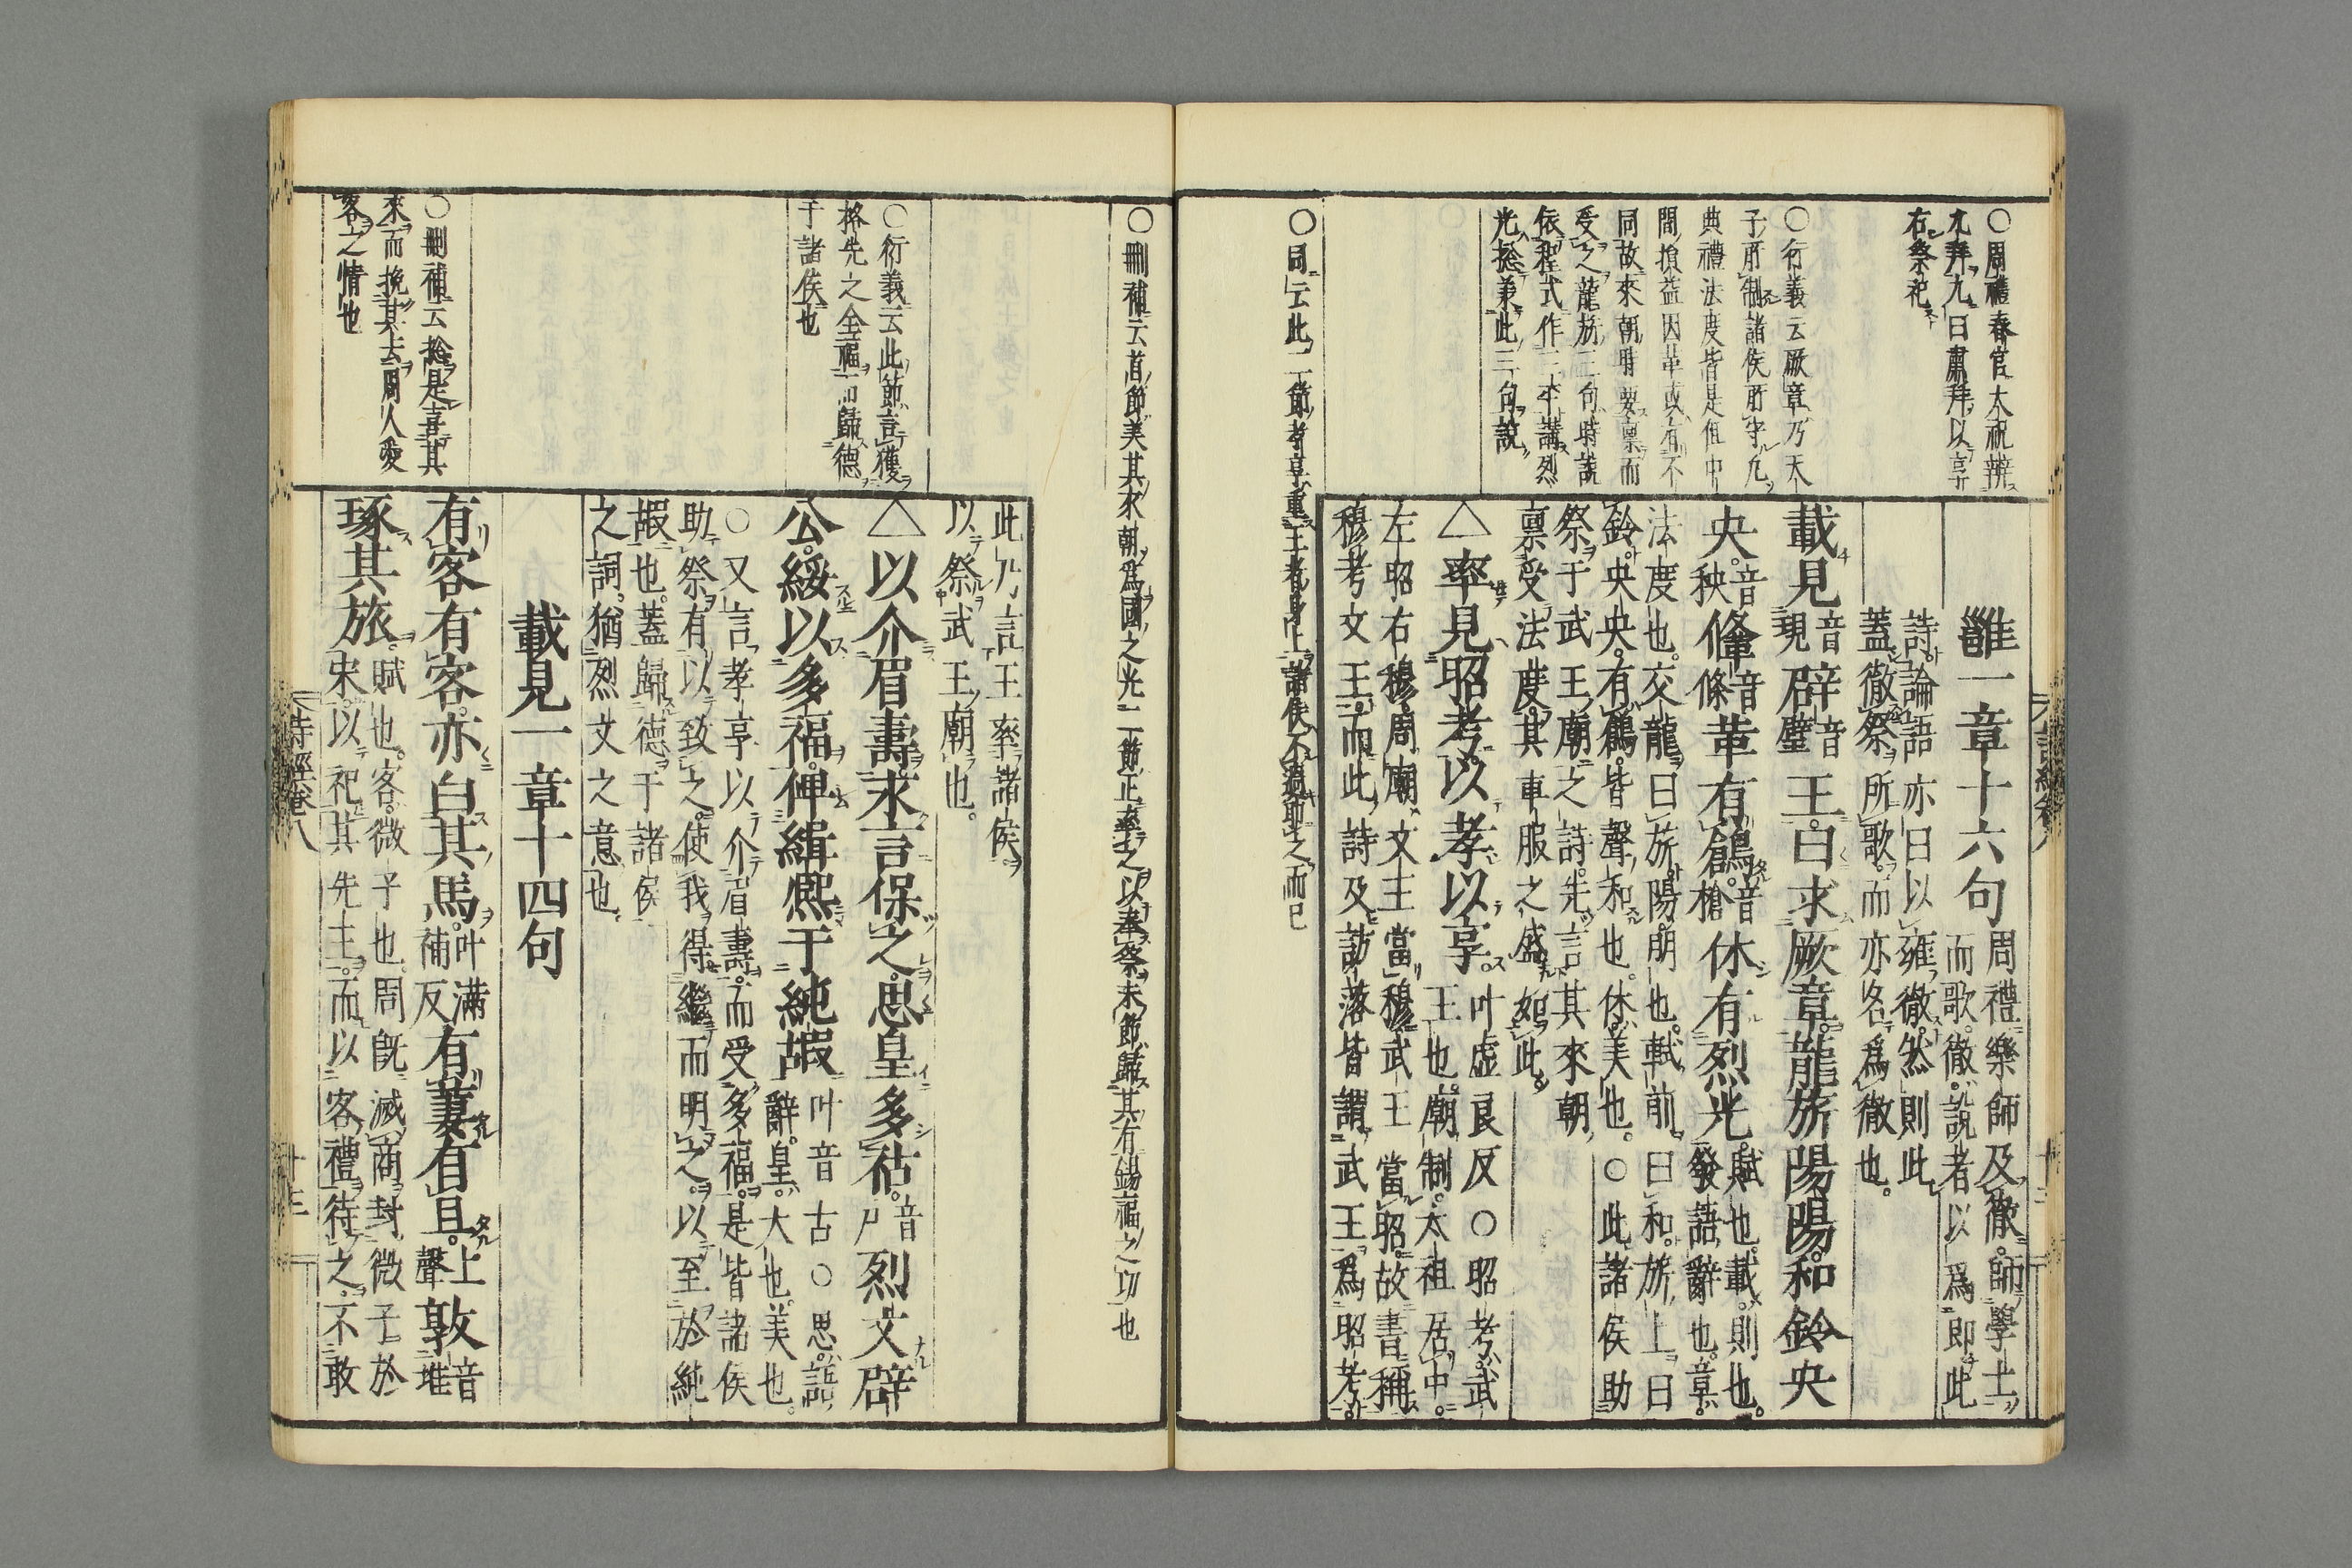 ○周禮春官大祝辨
九拜九曰肅拜以享
右祭祀
○衍義云厥章乃天
子所制諸侯所守凡
典禮法度皆是但中
間損益因革或有不
同故來朝時要稟而
受之龍旂三句時說
依程式作三平講烈
光捴兼此三句說
雝一章十六句周禮樂師及徹師學士
而歌徹說者以爲即此
詩論語亦曰以雍徹然則此
蓋徹祭所歌而亦名爲徹也
載見音現辟音璧王曰求厥章龍旂陽陽和鈴央
央音秧鞗音條革有鶬音槍休有烈光賦也載則也
發語辭也章
法度也交龍曰旂陽明也軾前曰和旂上曰
鈴央央有鶬皆聲和也休美也○此諸侯助
祭于武王廟之詩先言其來朝
稟受法度其車服之盛如此
△率見昭考以孝以享叶虛良反○昭考武
王也廟制太祖居中
左昭右穆周廟文王當穆武王當昭故書稱
穆考文王而此詩及訪落皆謂武王爲昭考
○同云此二節孝享重王者身上諸侯不過助之而已
○刪補云首節美其來朝爲國之光二節正率之以奉祭末節歸其有錫福之功也
○衍義云此節言獲
格先之全福而歸德
于諸侯也
○刪補云捴是喜其
來而挽其去周人愛
客之情也
此乃言王率諸侯
以祭武王廟也
△以介眉壽永言保之思皇多祜音戶烈文辟
公綏以多福俾緝熙于純嘏叶音古○思語
辭皇大也美也
○又言孝享以介眉壽而受多福是皆諸侯
助祭有以致之使我得繼而明之以至於純
嘏也蓋歸德于諸侯
之詞猶烈文之意也
載見一章十四句
有客有客亦白其馬叶滿補反有萋有且上聲敦音堆
琢其旅賦也客微子也周既滅商封微子於
宋以祀其先王而以客禮待之不敢
詩經卷八
十三